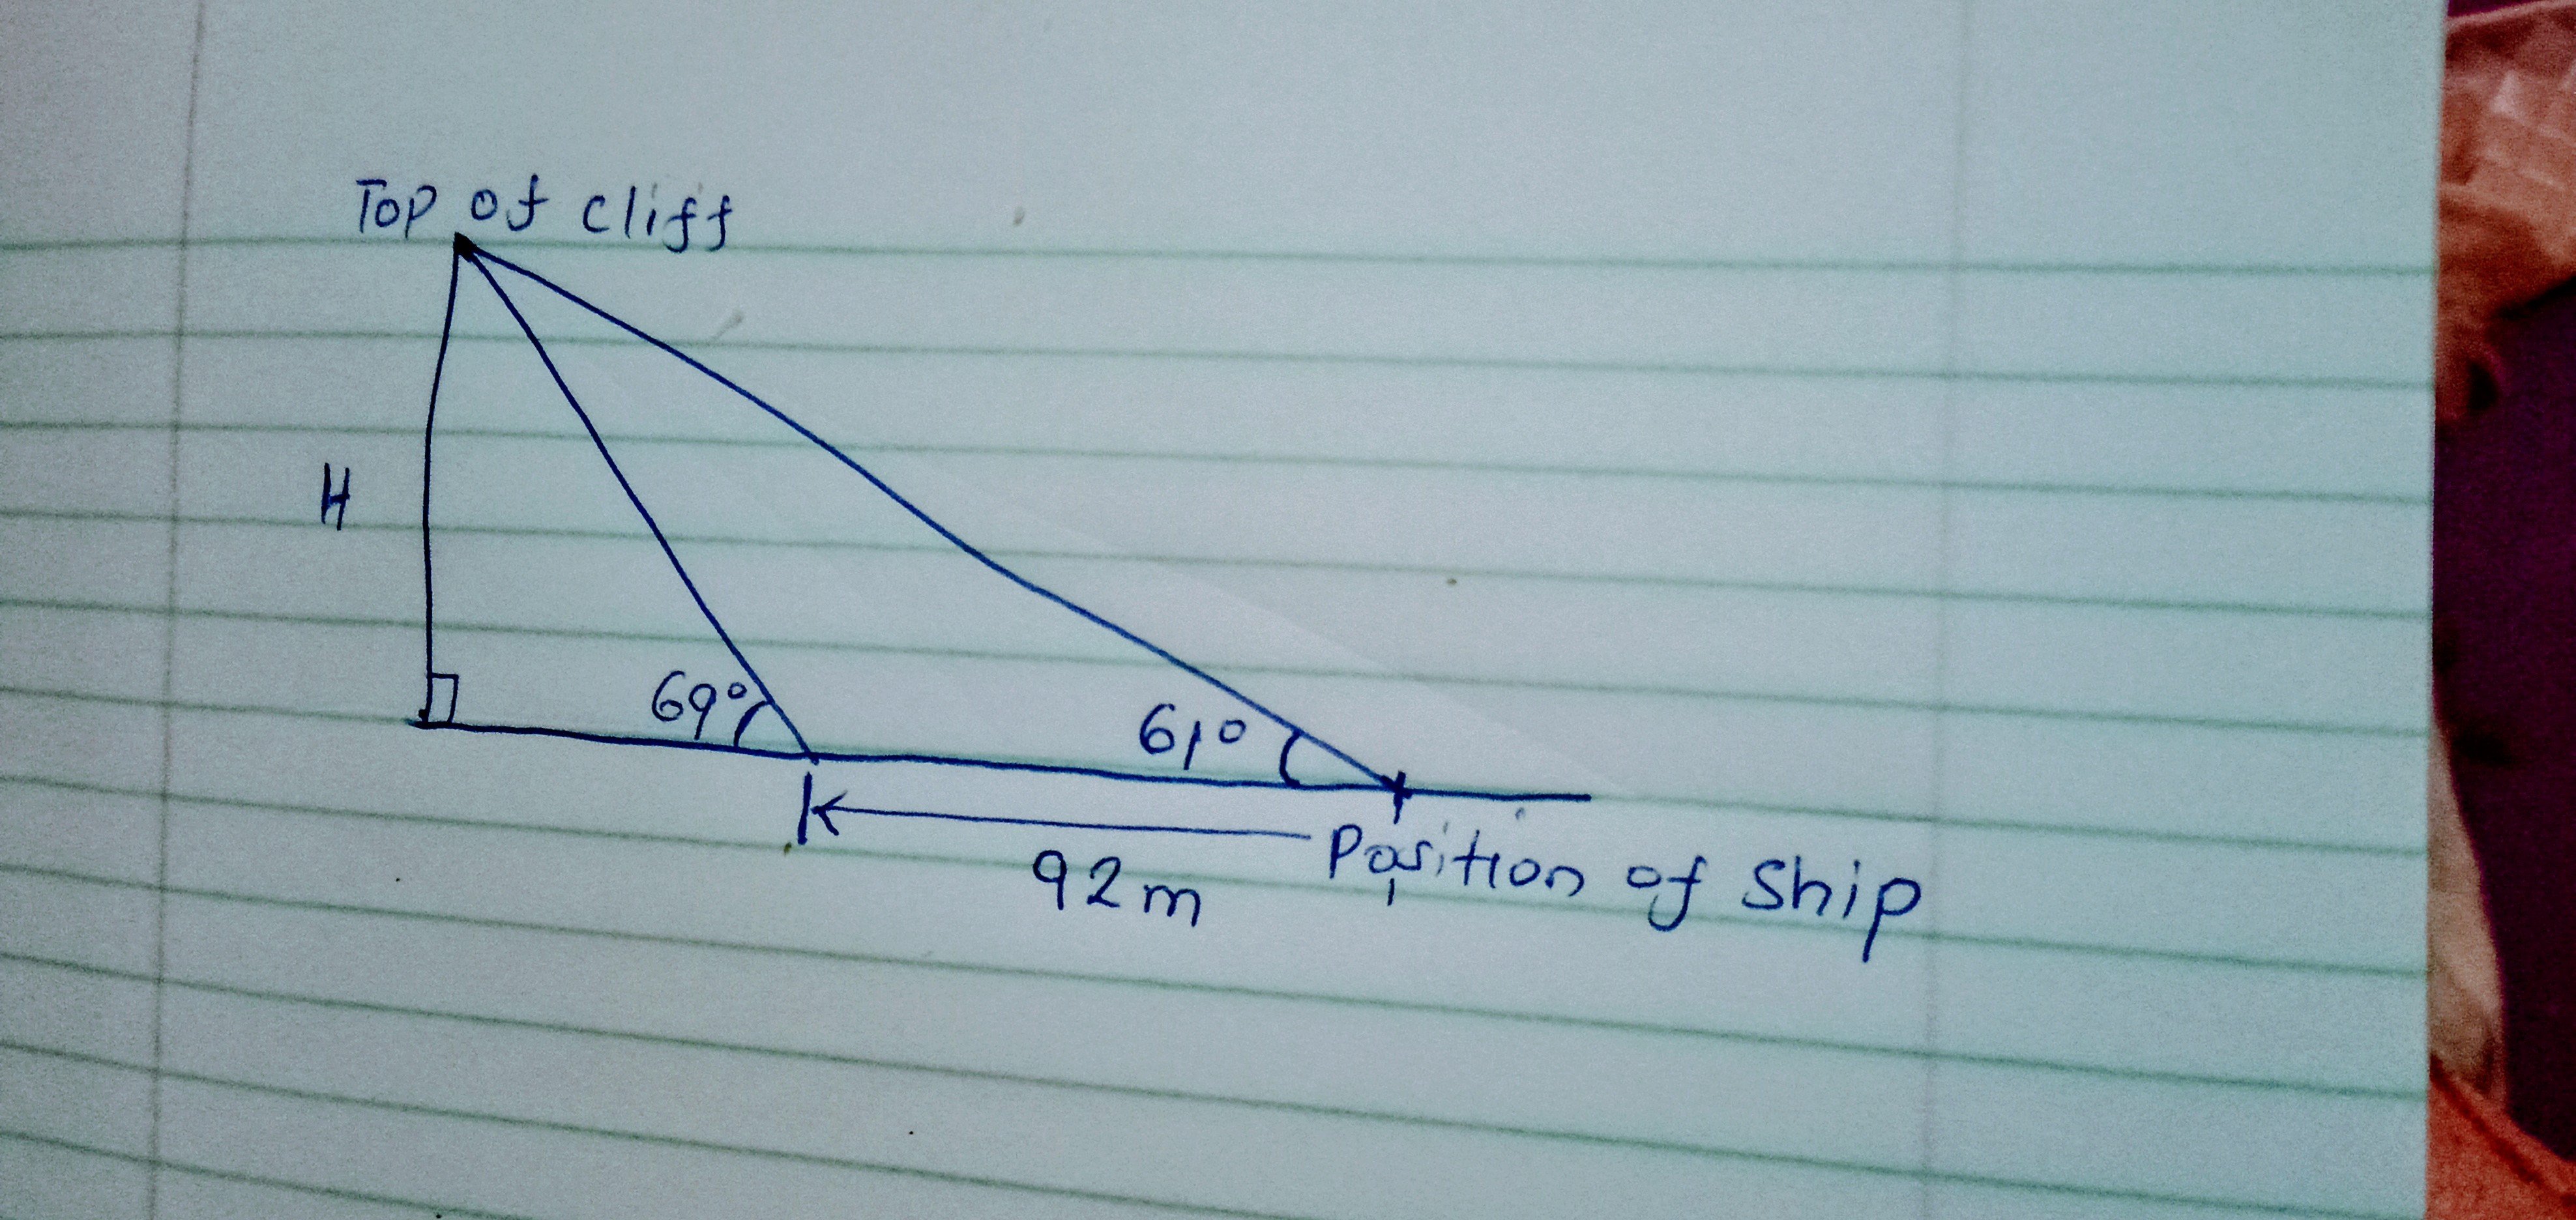 Top of cliff
H
69°
61°
92m
Position of Ship